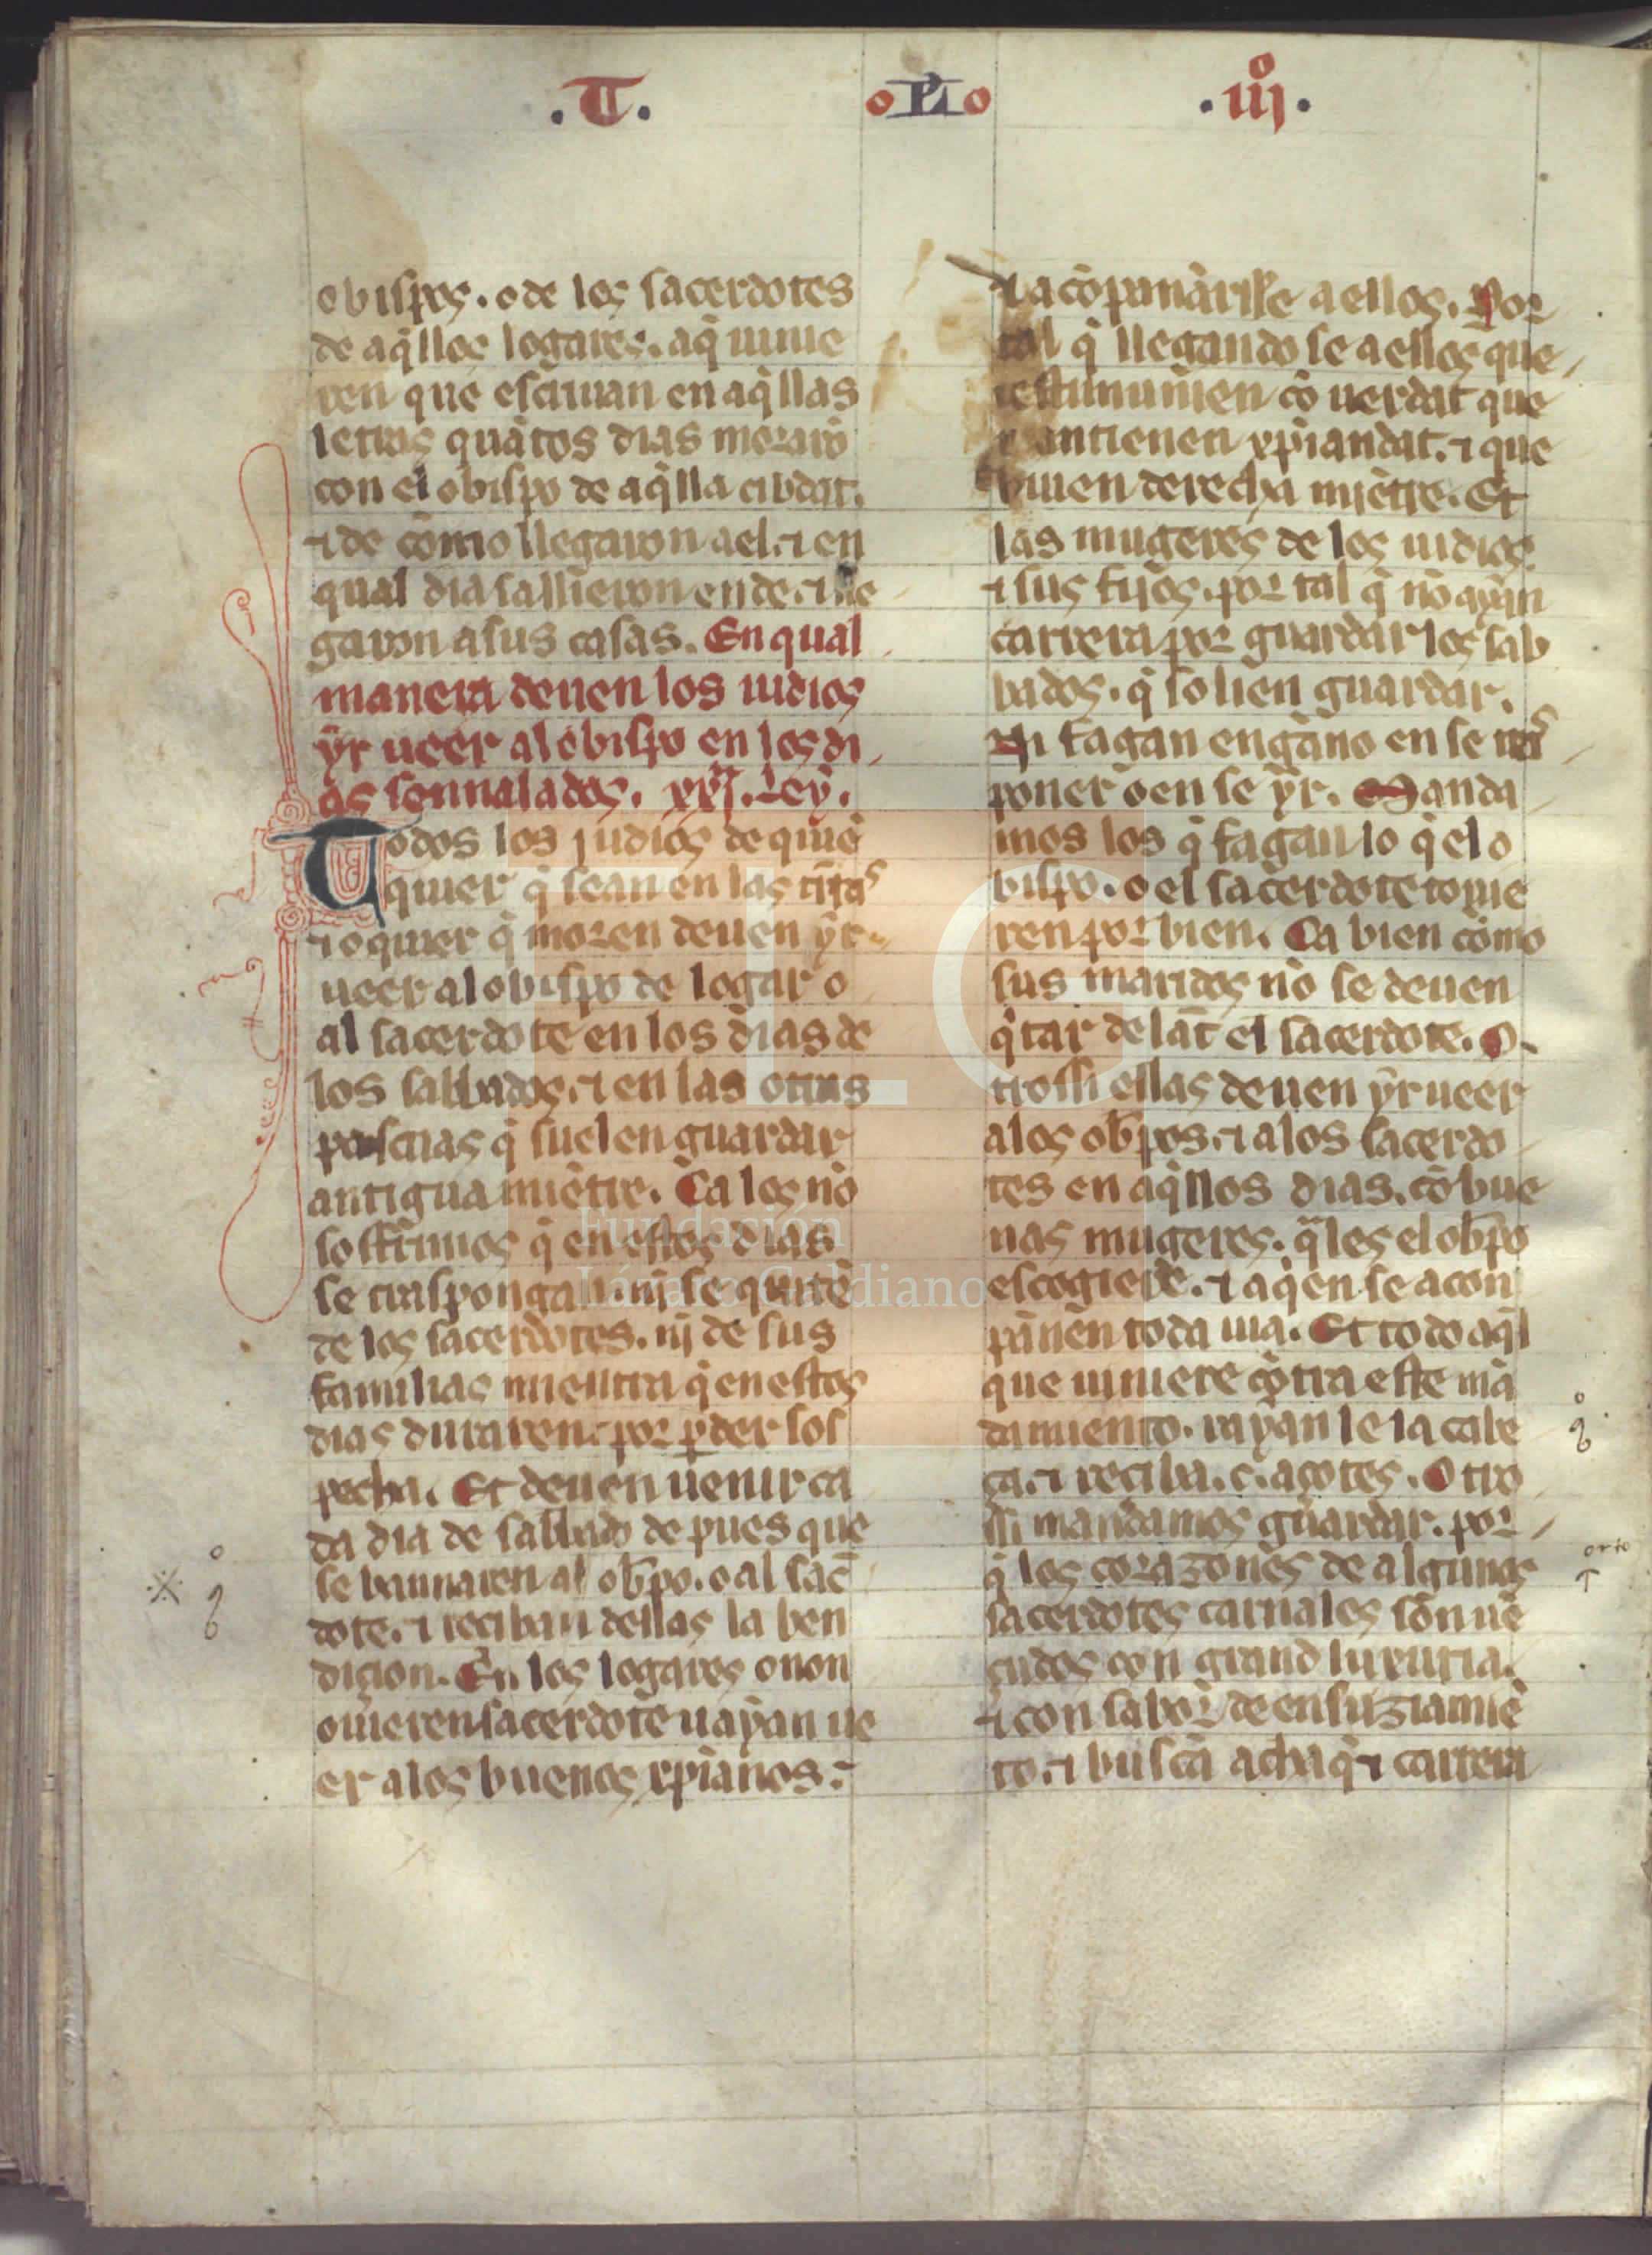 .T. oPLo .iijº.
obispos. o de los sacerdotes
de aq̃llos logares. aq̃ uinie
ren que escriuan en aq̃llas
letras quãtos dias moraro
con el obispo de aq̃lla cibdat.
⁊ de cõmo llegaron a el. ⁊ en
qual dia sallieron ende. ⁊ lle
garon a sus casas. En qual
manera deuen los iudios
ẏr ueer al obispo en los di
as sennalados. xxj. Ley.
Todos los judios de quiẽ
quier q̃ sean en las tr̃ras
⁊ o quier q̃ moren deuen ẏr
ueer al obispo de logar o
al sacerdote en los dias de
los sabbados. ⁊ en las otras
pascuas q̃ suelen guardar
antigua miẽtre. Ca los nõ
soffrimos q̃ en estos dias
se traspongan. nj̃ se quitẽ
de los sacerdotes. nj̃ de sus
familias mientra q̃ en estos
dias duraren. por ꝑder sos
pecha. Et deuen uenir ca
da dia de sabbado de pues que
se bannaren al ob̃po. o al sac̃
dote. ⁊ reciban dellas la ben
dicion. En los logares o non
ouieren sacerdote uaẏan ue
er a los buenos xp̃ianos.
⁊ acõpannarse a ellos. Por
tal q̃ llegando se a ellos que
testimunien cõ uerdat que
mantienen xp̃iandat. ⁊ que
biuen derecha miẽtre. Et
las mugeres de los iudios.
⁊ sus fijos. por tal q̃ nõ aẏan
carrera por guardar los sab
bados. q̃ solien guardar.
Ni fagan engano en se tras
poner o en se ẏr. Manda
mos los q̃ fagan lo q̃ el o
bispo. o el sacerdote touie
ren por bien. Ca bien cõmo
sus maridos nõ se deuen
q̃tar de lãt el sacerdote. O
trossi ellas deuen ẏr ueer
a los ob̃pos. ⁊ a los sacerdo
tes en aq̃llos dias. cõ bue
nas mugeres. q̃les el ob̃po
escogiere. ⁊ a q̃en se acon
pãnen toda uia. Et todo aq̃l
que uiniere cõtra este mã
damiento. raẏan le la cabe
ça. ⁊ reciba. c. açotes. Otro
ssi mandamos guardar. por
q̃ los corazones de algunos
sacerdotes carnales son uẽ
cudos con grand luxuria.
⁊ con sabor de ensuziamiẽ
to. ⁊ buscã achaq̃ ⁊ carrera